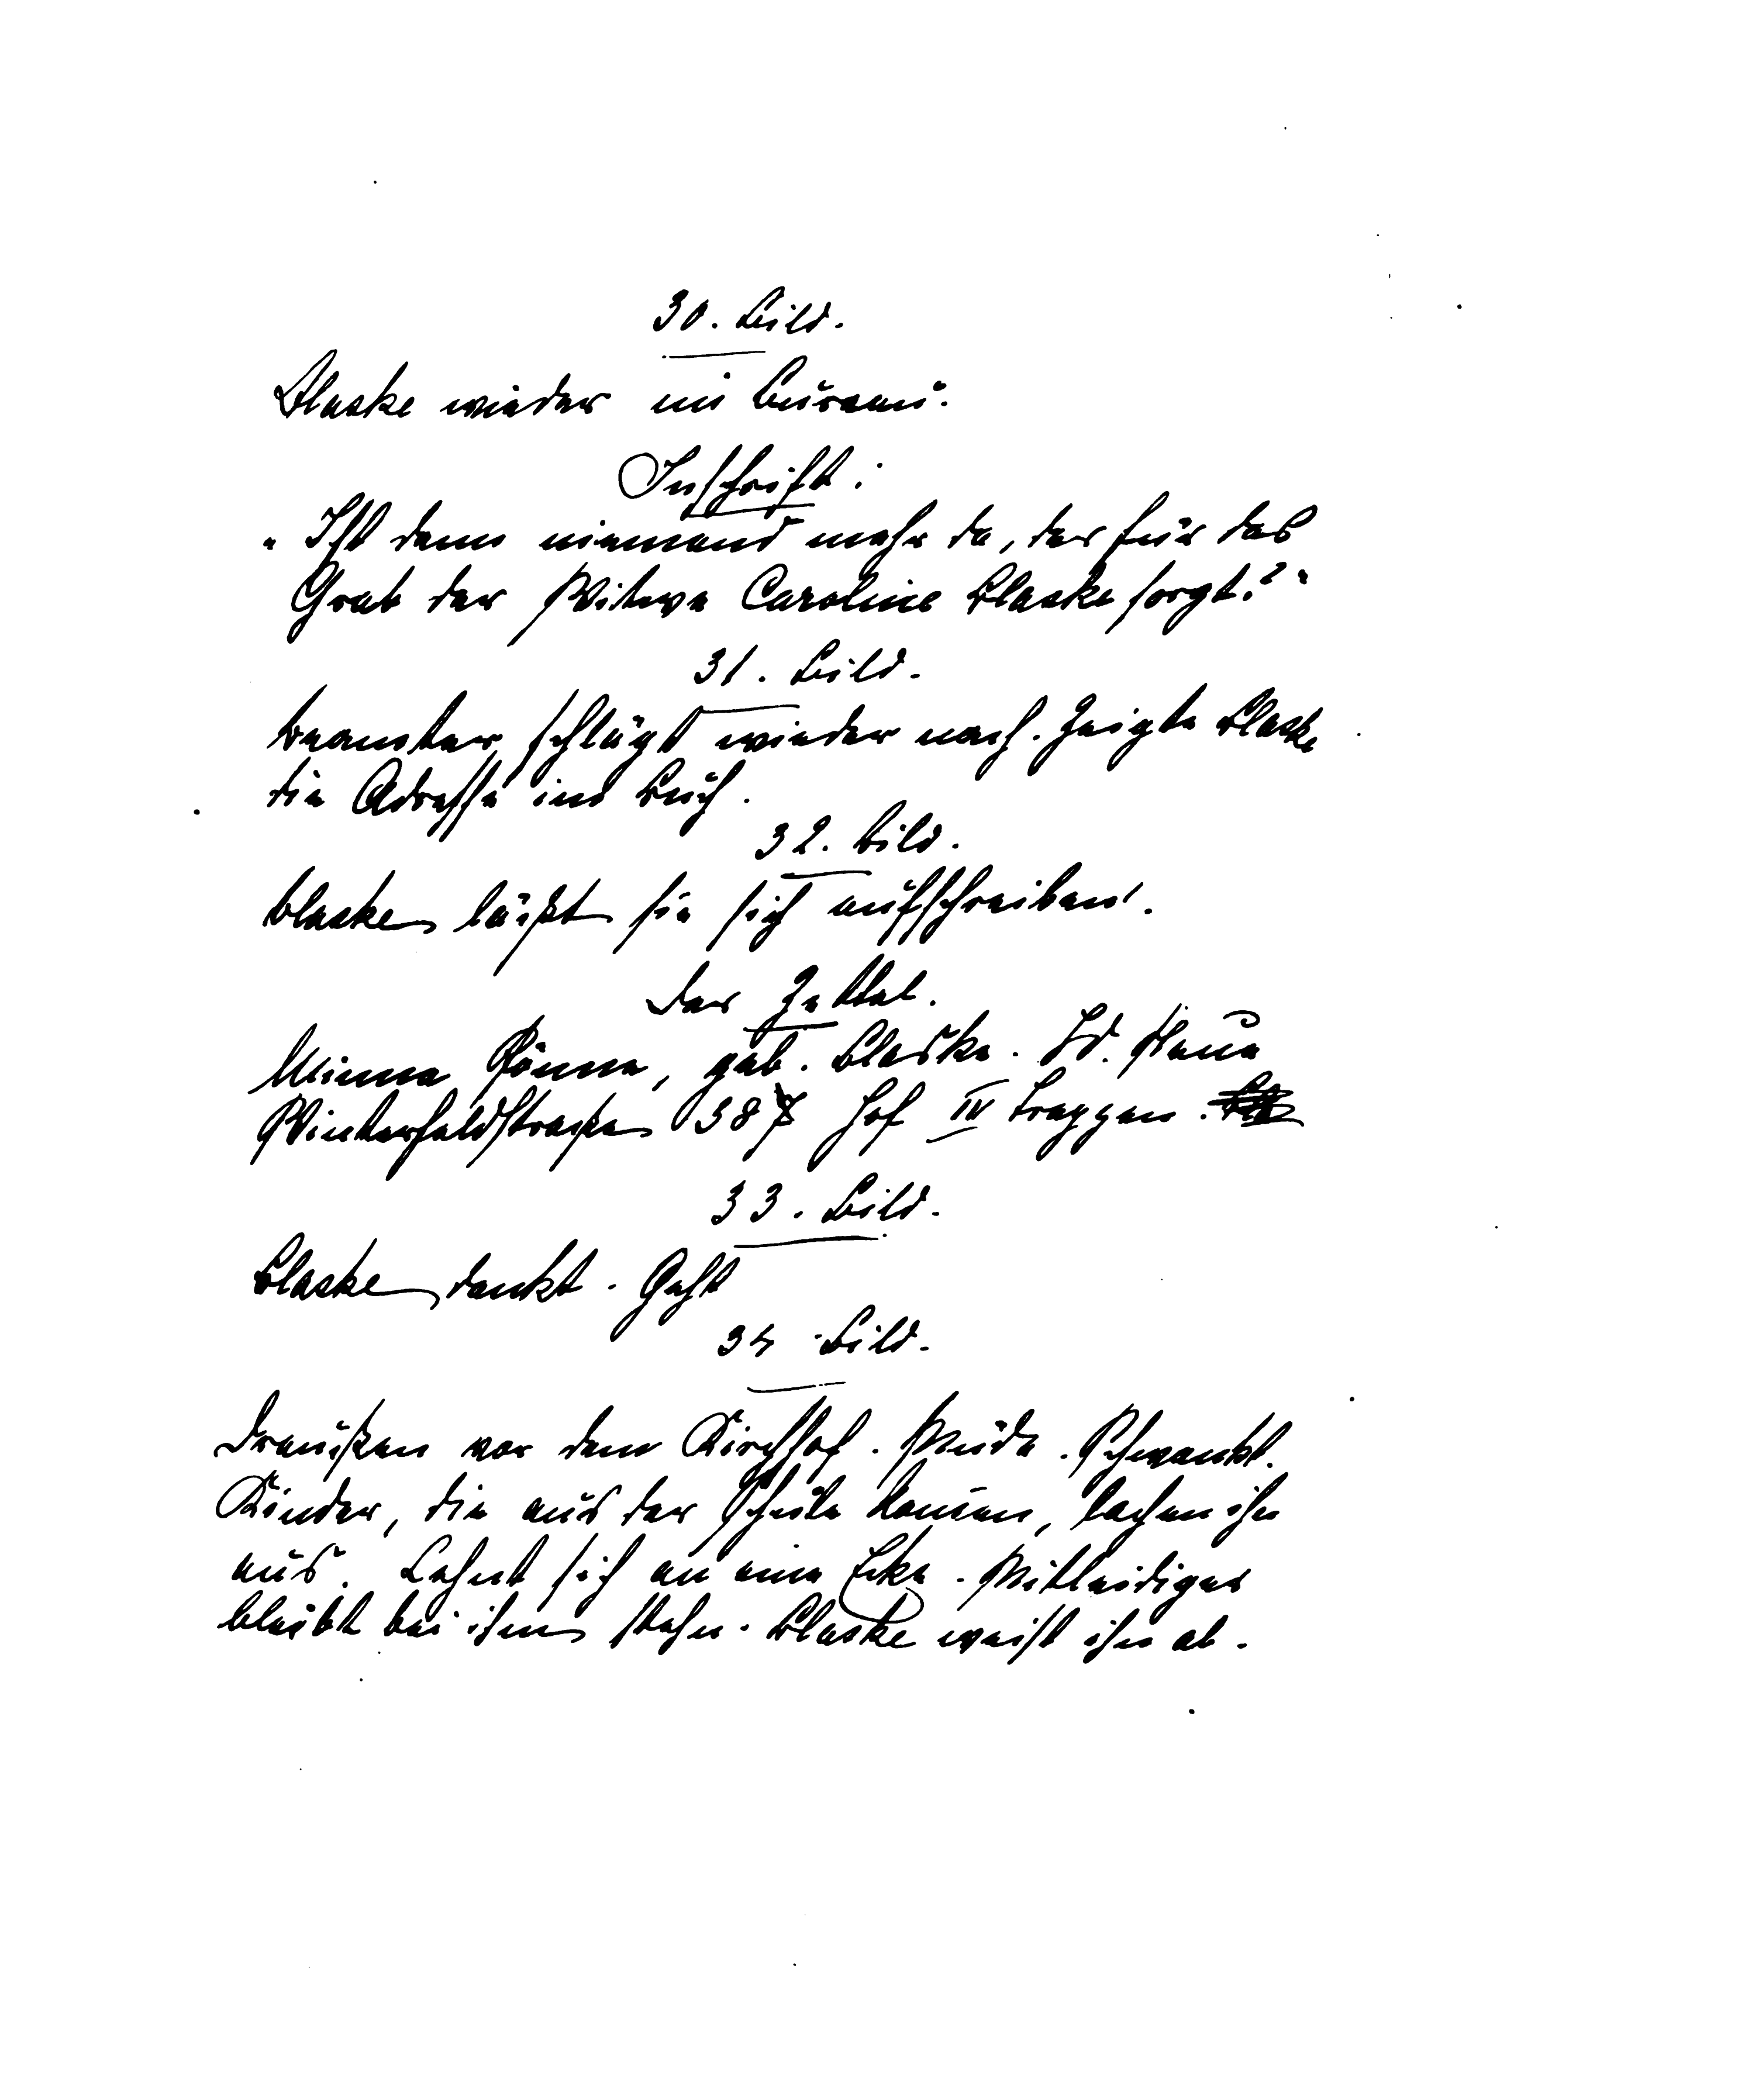 30. Bild.
Blaske wieder im Bureau.
Inschrift:
"Ist denn niemand mehr da, der für das
Grab der Witwe Caroline Blaske sorgt?"
31. Bild.
Beamter schlägt wieder nach. Zeigte Blaske
die Adresse im Buch.
32. Bild.
Blaske läßt sie sich aufschreiben.
Der Zettel.
Minna Rönne, geb. Blaske.
Winterfeldstraße 387 Hof IV Treppen.
33. Bild.
Blaske dankt. Geht
34 Bild.
Draußen vor dem Kirchhof. Müde. Schwankt.
Kinder, die aus der Schule kom̄en, lachen ihn
aus. Lehnt sich an eine Ecke. Mitleidiger
bleibt bei ihm stehn. Blaske weist ihn ab.